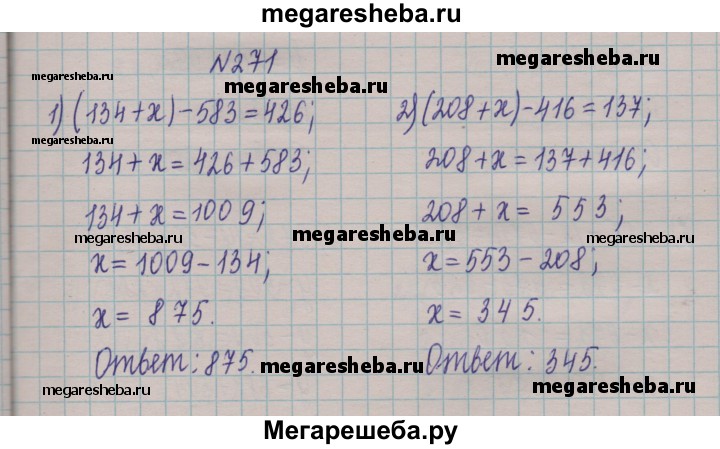 megaresheba.ru
N271
megaresheba.ru
megaresheba.ru
megaresheba.ru
1) (134+x)-583=426;
134+x=426+583;
134+x=1009;
x=1009-134;
x= 875.
Ответ: 875.
2) (208+x)-416=137;
208+x=137+416;
208+x= 553;
x=553-208;
x= 345.
Ответ: 345.
megaresheba.ru
megaresheba.ru
megaresheba.ru
megaresheba.ru
megaresheba.ru
megaresheba.ru
megaresheba.ru
Мегарешеба.ру